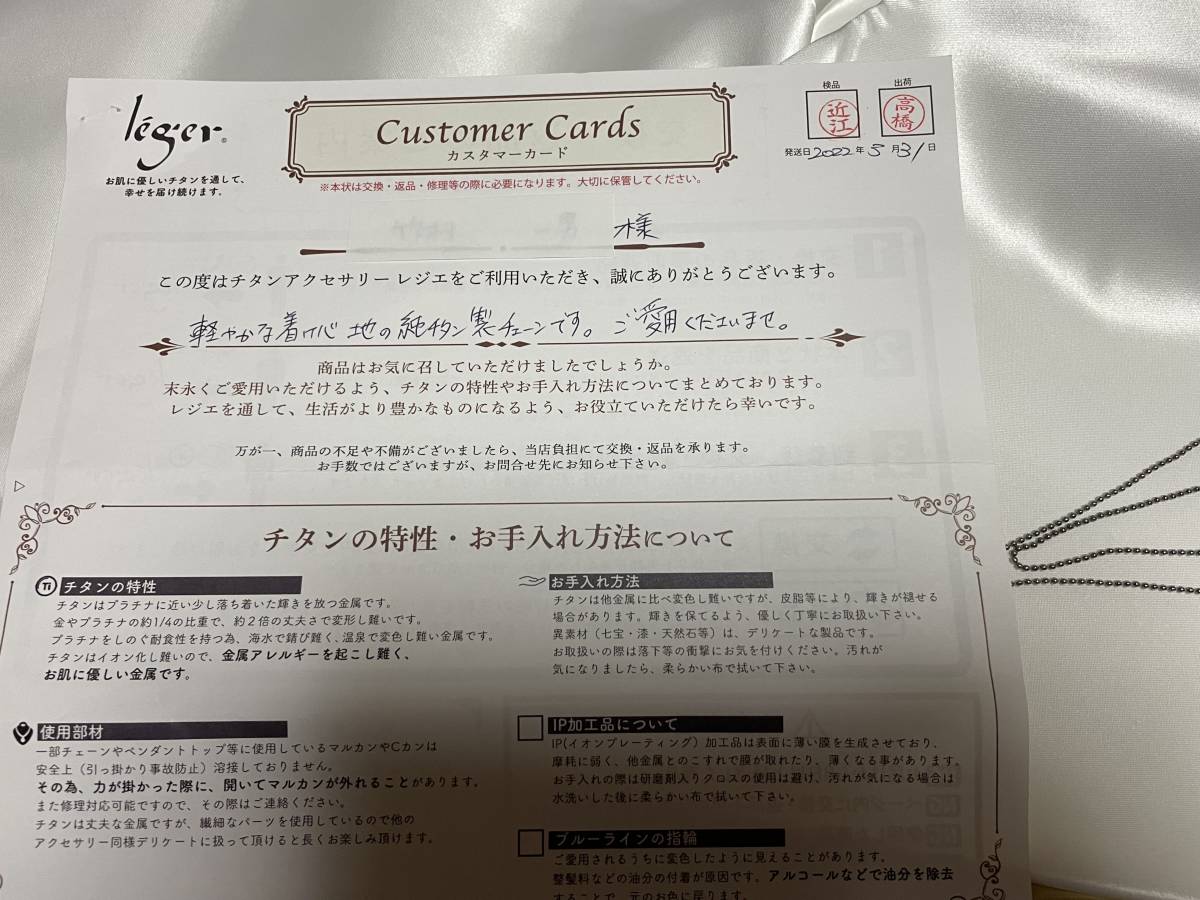 léger®
お肌に優しいチタンを通して、
幸せを届け続けます。
Customer Cards
カスタマーカード
※本状は交換・返品・修理等の際に必要になります。大切に保管してください。
検品
出荷
近江
高橋
発送日2022年5月31日
様
この度はチタンアクセサリー レジエをご利用いただき、誠にありがとうございます。
軽やかな着け心地の純チタン製チェーンです。ご愛用くださいませ。
商品はお気に召していただけましたでしょうか。
末永くご愛用いただけるよう、チタンの特性やお手入れ方法についてまとめております。
レジエを通して、生活がより豊かなものになるよう、お役立ていただけたら幸いです。
万が一、商品の不足や不備がございましたら、当店負担にて交換・返品を承ります。
お手数ではございますが、お問合せ先にお知らせ下さい。
チタンの特性・お手入れ方法について
Ti チタンの特性
チタンはプラチナに近い少し落ち着いた輝きを放つ金属です。
金やプラチナの約1/4の比重で、約2倍の丈夫さで変形し難いです。
プラチナをしのぐ耐食性を持つ為、海水で錆び難く、温泉で変色し難い金属です。
チタンはイオン化し難いので、金属アレルギーを起こし難く、
お肌に優しい金属です。
お手入れ方法
チタンは他金属に比べ変色し難いですが、皮脂等により、輝きが褪せる
場合があります。輝きを保てるよう、優しく丁寧にお取扱い下さい。
異素材（七宝・漆・天然石等）は、デリケートな製品です。
お取扱いの際は落下等の衝撃にお気を付けください。汚れが
気になりましたら、柔らかい布で拭いて下さい。
使用部材
一部チェーンやペンダントトップ等に使用しているマルカンやCカンは
安全上（引っ掛かり事故防止）溶接しておりません。
その為、力が掛かった際に、開いてマルカンが外れることがあります。
また修理対応可能ですので、その際はご連絡ください。
チタンは丈夫な金属ですが、繊細なパーツを使用しているので他の
アクセサリー同様デリケートに扱って頂けると長くお楽しみ頂けます。
IP加工品について
IP(イオンプレーティング）加工品は表面に薄い膜を生成させており、
摩耗に弱く、他金属とのこすれで膜が取れたり、薄くなる事があります。
お手入れの際は研磨剤入りクロスの使用は避け、汚れが気になる場合は
水洗いした後に柔らかい布で拭いて下さい。
ブルーラインの指輪
ご愛用されるうちに変色したように見えることがあります。
整髪料などの油分の付着が原因です。アルコールなどで油分を除去
することで、元のお色に戻ります。